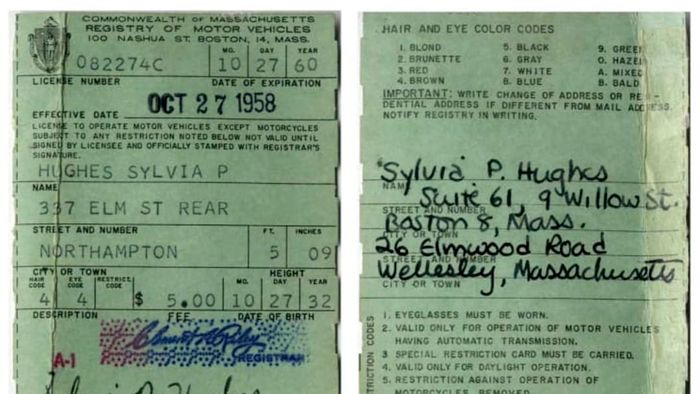 COMMONWEALTH OF MASSACHUSETTS
REGISTRY OF MOTOR VEHICLES
100 NASHUA ST. BOSTON, 14, MASS.
MO. DAY YEAR
082274C 10 27 60
LICENSE NUMBER DATE OF EXPIRATION
OCT 27 1958
EFFECTIVE DATE
LICENSE TO OPERATE MOTOR VEHICLES EXCEPT MOTORCYCLES
SUBJECT TO ANY RESTRICTION NOTED BELOW NOT VALID UNTIL
SIGNED BY LICENSEE AND OFFICIALLY STAMPED WITH REGISTRAR'S
SIGNATURE.
HUGHES SYLVIA P
NAME
337 ELM ST REAR
STREET AND NUMBER FT. INCHES
NORTHAMPTON 5 09
CITY OR TOWN HEIGHT
HAIR CODE EYE CODE RESTRICT. CODE MO. DAY YEAR
4 4 $ 5.00 10 27 32
DESCRIPTION FEE DATE OF BIRTH
A-1 REGISTRAR
HAIR AND EYE COLOR CODES
1. BLOND 5. BLACK 9. GREEN
2. BRUNETTE 6. GRAY O. HAZEL
3. RED 7. WHITE A. MIXED
4. BROWN 8. BLUE B. BALD
IMPORTANT: WRITE CHANGE OF ADDRESS OR RESI-
DENTIAL ADDRESS IF DIFFERENT FROM MAIL ADDRESS.
NOTIFY REGISTRY IN WRITING.
Sylvia P. Hughes
NAME
Suite 61, 9 Willow St.
STREET AND NUMBER
Boston 8, Mass.
CITY OR TOWN
26 Elmwood Road
STREET AND NUMBER
Wellesley, Massachusetts
CITY OR TOWN
1. EYEGLASSES MUST BE WORN.
2. VALID ONLY FOR OPERATION OF MOTOR VEHICLES
HAVING AUTOMATIC TRANSMISSION.
3 SPECIAL RESTRICTION CARD MUST BE CARRIED.
4. VALID ONLY FOR DAYLIGHT OPERATION.
5. RESTRICTION AGAINST OPERATION OF
MOTORCYCLES REMOVED